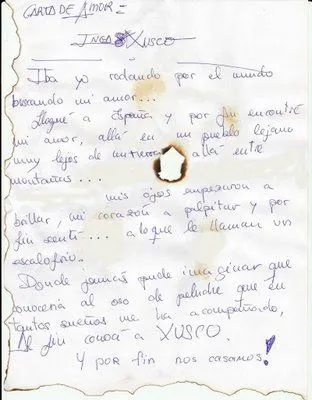 CARTA DE AMOR:
INGA & XUSCO
Iba yo rodando por el mundo
buscando mi amor...
Llegué a España y por fin encontré
mi amor, allá en un pueblo lejano
muy lejos de mi allá entre
montañas...
mis ojos empezaron a
brillar, mi corazón a palpitar y por
fin sentí... a lo que le llaman un
escalofrío..
Donde jamás pude imaginar que
conocería al oso de peluche que en
tantos sueños me ha acompañado,
Al fin conocí a XUSCO.
Y por fin nos casamos!